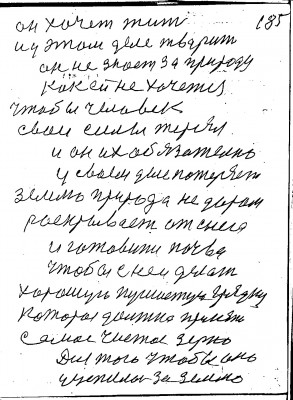 он хочет жить 185
и у этом деле тварит
он не знает за природу
как ей не хочется
чтобы человек
свои силы терял
и он их обязательно
у своем деле потеряет
землю природа не даром
раскрывает от снега
и готовит почва
чтобы с ней делат
хорошую пушистую грядку
которая должна принять
самое чистое зерно
Для того чтобы оно
уцепилось за землю